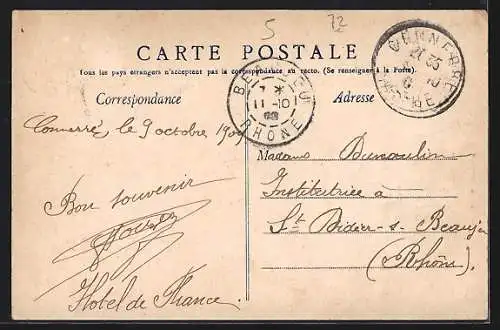 5 72
CARTE POSTALE
Tous les pays étrangers n'acceptent pas la correspondance au recto. (Se renseigner à la Poste).
Correspondance
Adresse
CONNERRÉ
SARTHE
BEAUJEU
11 -10
RHONE
Connerré, le 9 octobre 1909
Bon souvenir
Hôtel de France.
Madame Dumoulin
Institutrice à
St Didier-s-Beaujeu
(Rhône)